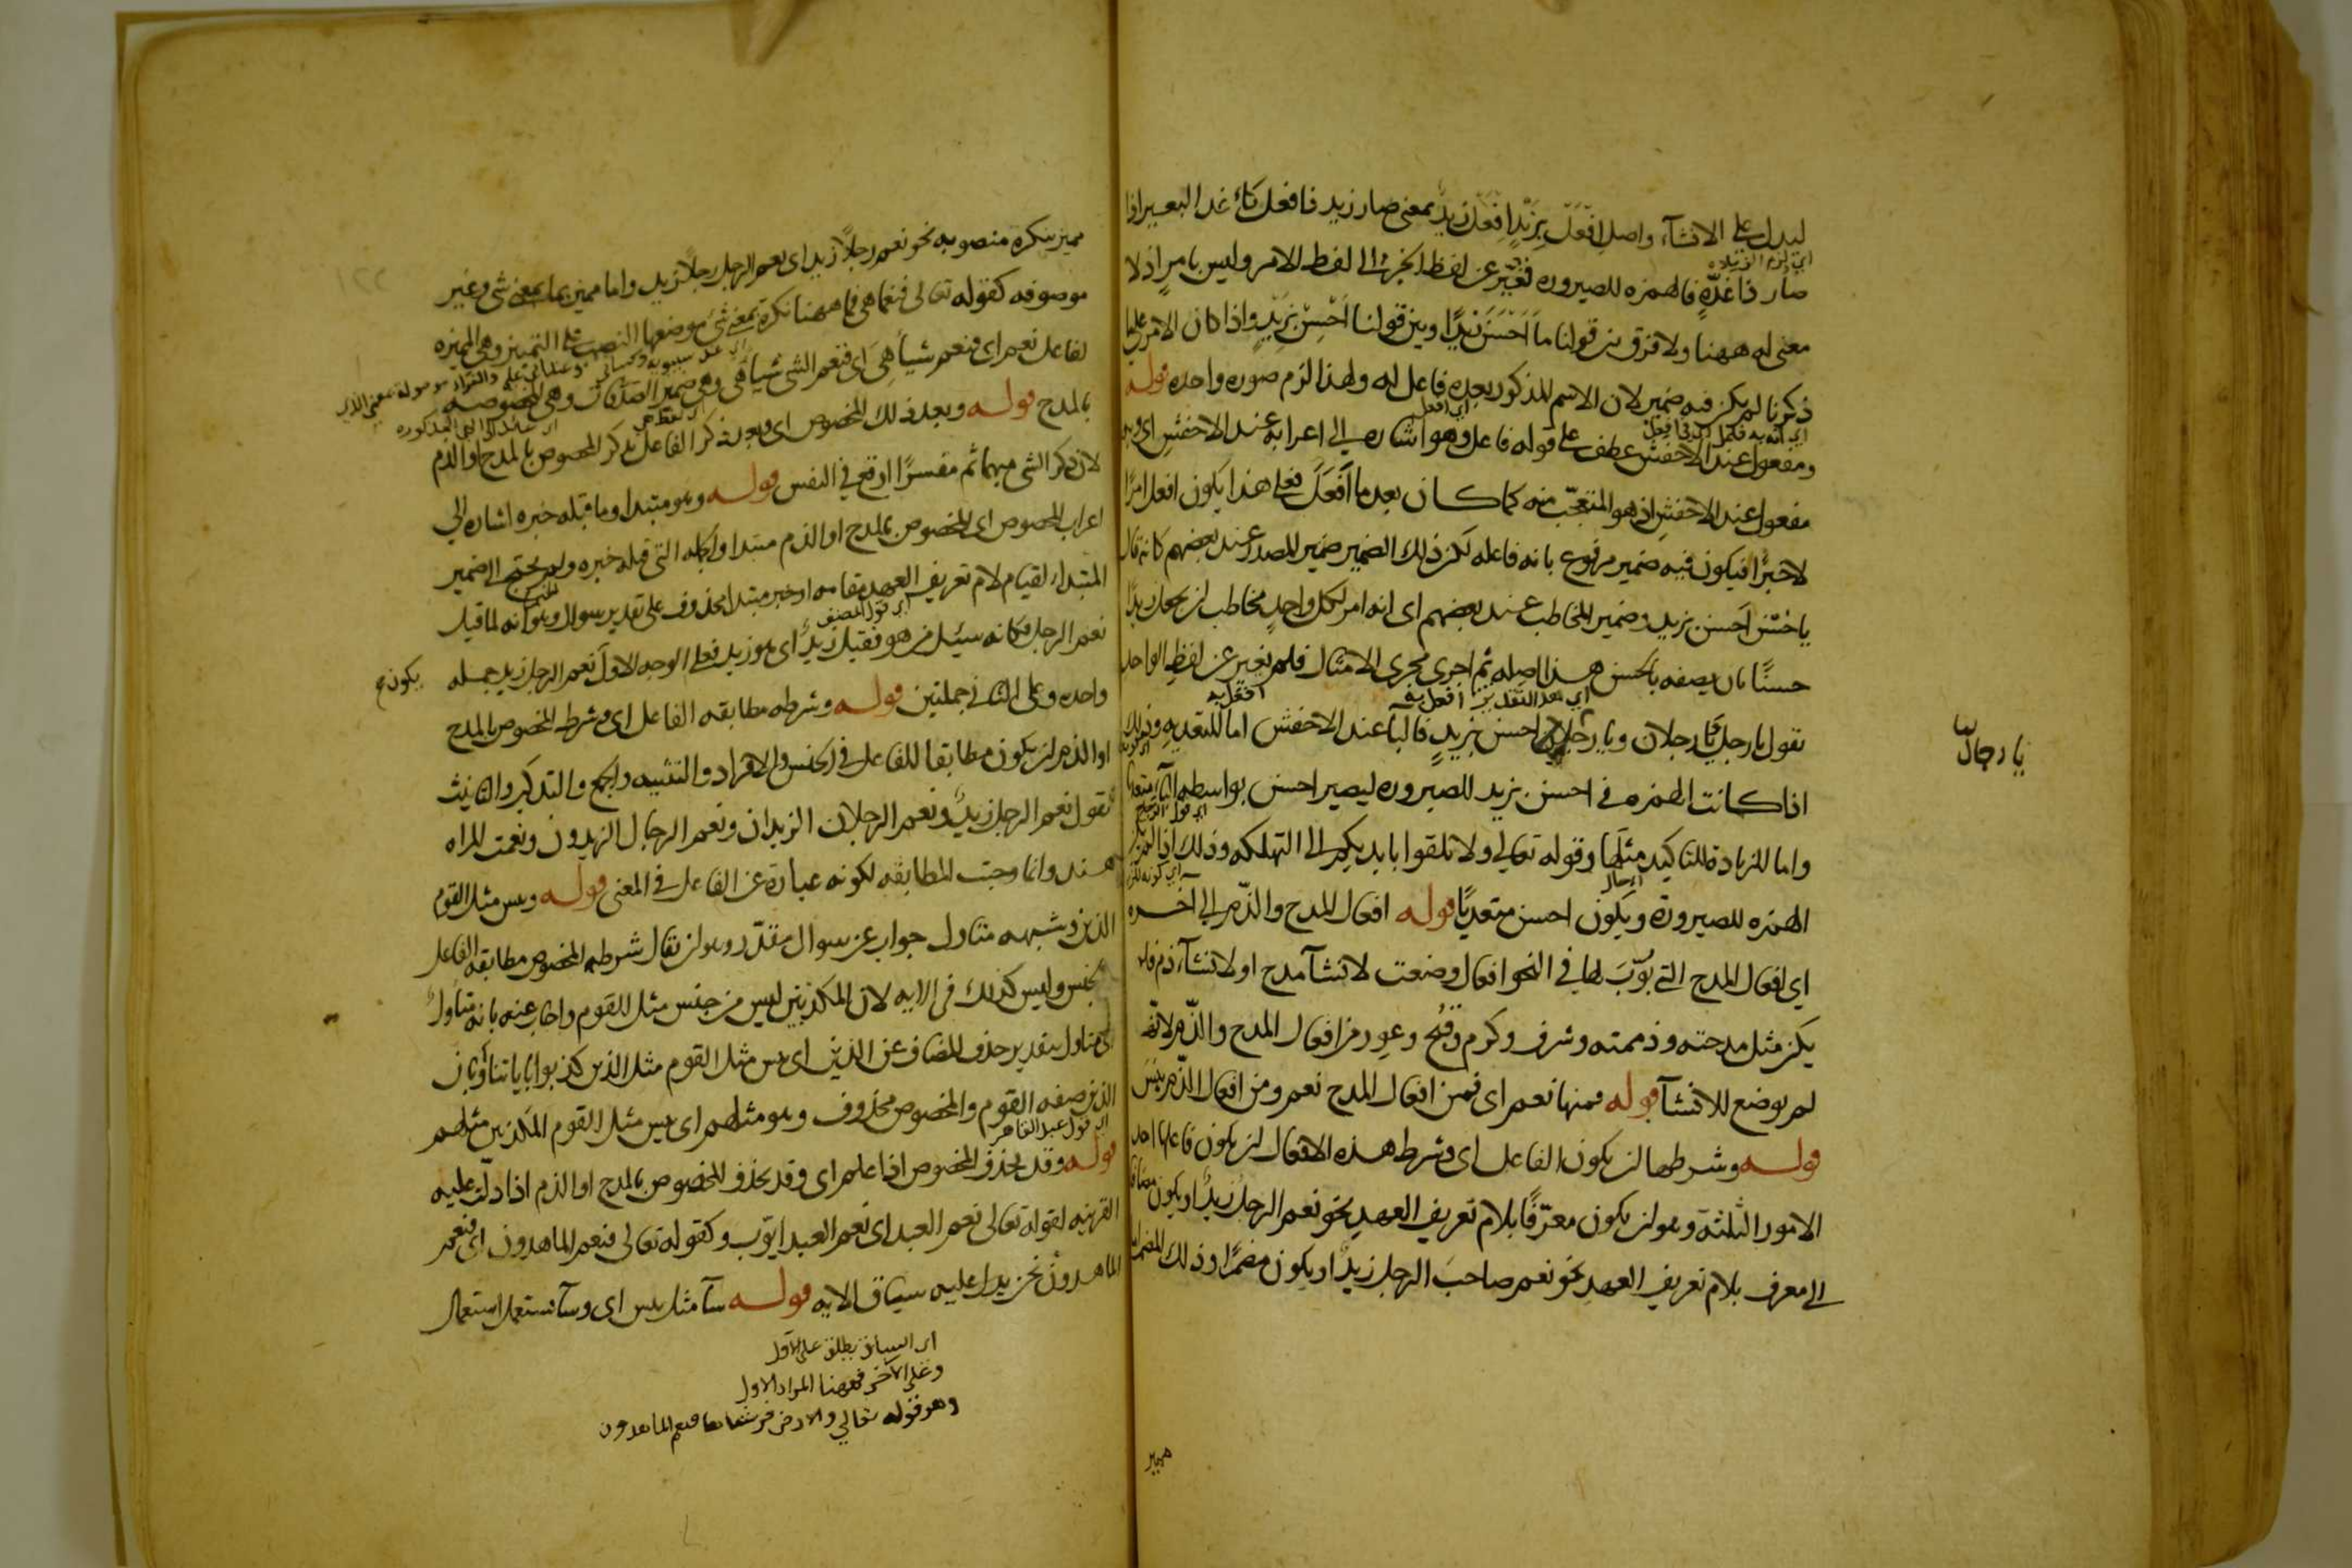 ليدل على الانشآء واصل افعل بزيد افعل زيد بمعنى صار زيد ذا فعل كاغد البعير اذا
صار ذا غدّةٍ فالهمزه للصيروره فغيّر عن لفظ الخبر الى لفظ الامر وليس بامرٍ اذ لا
معنى له ههنا ولا فرق بين قولنا ما احسن زيدًا وبين قولنا احسن بزيدٍ واذا كان الامر على ما
ذكرنا لم يكن فيه ضمير لان الاسم المذكور بعده فاعل له ولهذا لزم صوره واحده قوله
ومفعول عند الاخفش عطف على قوله فاعل وهو اشاره الى اعرابه عند الاخفش اى وبه
مفعول عند الاخفش اذ هو المتعجّب منه كما كان بعد ما افعَلَ فعلى هذا يكون افعل امرًا
لا خبرًا فيكون فيه ضمير مرفوع بانه فاعله لكن ذلك الضمير ضمير المصدر عند بعضهم كانه قال
يا حُسْن احسن بزيد وضمير المخاطب عند بعضهم اى انه امر لكل واحدٍ مخاطب لان يجعل زيدًا
حسنًا بان يصفه بالحسن هذا اصله ثم اجرى مجرى الامثال فلم يغير عن لفظ الواحد
تقول يا رجل يا رجلان ويا رجال احسن بزيدٍ فالبآ عند الاخفش اما للتعديه وذلك
يا رجال
اذا كانت الهمزه فى احسن بزيد للصيروره ليصير احسن بواسطه البآ متعديا
واما للزيادة للتاكيد مثلها وقوله تعالى ولا تلقوا بايديكم الى التهلكه وذلك اذا لم تكن
الهمزه للصيرورة ويكون احسن متعديًا قوله افعال المدح والذّم الى آخره
اي افعال المدح التي بُوّبَ لها في النحو افعال وضعت لانشآ مدح او لانشآء ذم فلم
يكن مثل مدحته وذممته وشرف وكرم وقبُح وعور من افعال المدح والذّم لانه
لم يوضع للانشآ قوله فمنها نعم اى فمن افعال المدح نعم ومن افعال الذّم بئسَ
قوله وشرطها ان يكون الفاعل اى وشرط هذه الافعال ان يكون فاعلها احد
الامور الثلثة وهو ان يكون معرّفًا بلام تعريف العهد نحو نعم الرجل زيدٌ او يكون مضافا
الى معرف بلام تعريف العهد نحو نعم صاحبَ الرجل زيدٌ او يكون مضمرًا وذلك المضمر
مميز
مميز بنكرة منصوبه نحو نعم رجلًا زيد اى نعم الرجل رجلًا زيد واما مميز بما بمعنى شى وغير
موصوفه كقوله تعالى فنعما هى فما ههنا نكرة بمعنى شئ موضعها النصب على التمييز وهى المميزه
لفاعل نعم اى فنعم شيأ هِىَ اى فنعم الشى شيأ هى وهى ضمير الصدقات وهى المخصوصه
بالمدح قوله وبعد ذلك المخصوص اى وبعد ذكر الفاعل يذكر المخصوص بالمدح او الذم
لان ذكر الشى مبهما ثم مفسرًا اوقع في النفس قوله وهو مبتدا وما قبله خبره اشاره الى
اعراب المخصوص اى المخصوص بالمدح او الذم مبتدا والجمله التى قبله خبره ولم يحتج الى ضمير
المبتدا، لقيام لام تعريف العهد مقامه او خبر مبتدا محذوف على تقدير سوال وهو انه لما قيل
نعم الرجل فكانه سئل من هو فقيل زيدٌ اى هو زيد فعلى الوجه الاول نعم الرجل زيد جمله
يكون
واحده وعلى الثانى جملتين قوله وشرطه مطابقه الفاعل اى وشرط المخصوص بالمدح
او الذم ان يكون مطابقا للفاعل في الجنس والافراد والتثنيه والجمع والتذكير والتانيث
تقول نعم الرجل زيدٌ ونعم الرجلان الزيدان ونعم الرجال الزيدون ونعمت المراه
هند وانما وجبت المطابقه لكونه عبارة عن الفاعل في المعنى قوله وبئس مثل القوم
الذين وشبهه متاول جواب عن سوال مقدّر وهو ان يقال شرط المخصوص مطابقة الفاعل
الجنس وليس كذلك في الايه لان المكذبين ليس من جنس مثل القوم واجاب عنه بانه متاول
اى متاول بتقدير حذف المضاف عن الذين اى بئس مثل القوم مثل الذين كذبوا باياتنا وبان
الذين صفه القوم والمخصوص محذوف وهو مثلهم اى بئس مثل القوم المكذبين مثلهم
قوله وقد يحذف المخصوص اذا علم اى وقد يحذف المخصوص بالمدح او الذم اذا دلّت عليه
القرينه لقوله تعالى نعم العبد اى نعم العبد ايّوب وكقوله تعالى فنعم الماهدون اى فنعم
الماهدون نحن يدل عليه سياق الايه قوله سآ مثل بئس اى وسآ تستعمل استعمال
اى السياق يطلق على الاول
وعلى الآخر فههنا المراد الاول
وهو قوله تعالى والارض فرشناها فنعم الماهدون